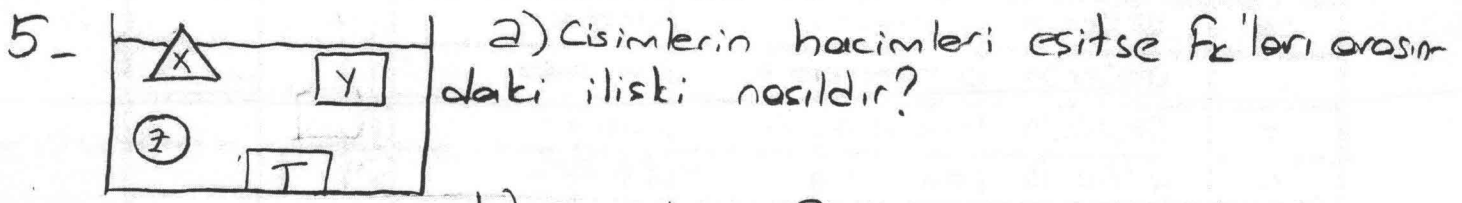 5- a) Cisimlerin hacimleri esitse Fk'ları arasın-
daki iliski nasıldır?
X
Y
Z
T
b)